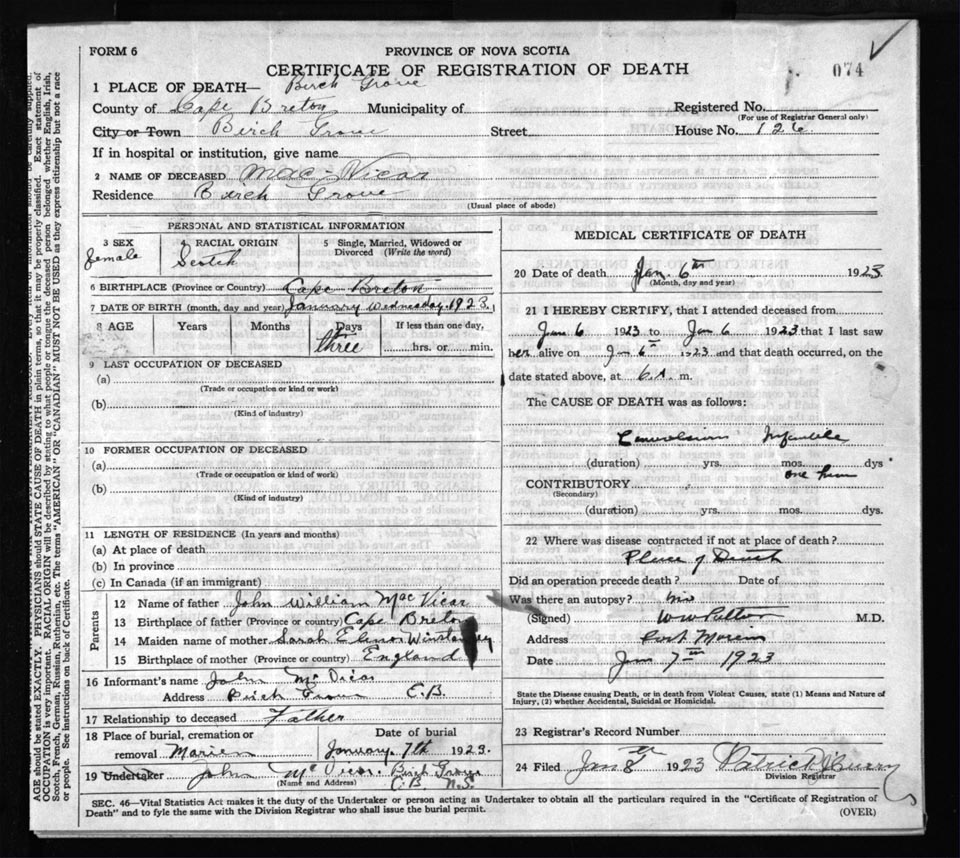 FORM 6
PROVINCE OF NOVA SCOTIA
CERTIFICATE OF REGISTRATION OF DEATH
074
1 PLACE OF DEATH— Birch Grove
County of Cape Breton Municipality of
Registered No.
(For use of Registrar General only)
City or Town Birch Grove Street House No. 126
If in hospital or institution, give name
2 NAME OF DECEASED Mac Vicar
Residence Birch Grove
(Usual place of abode)
PERSONAL AND STATISTICAL INFORMATION
3 SEX 4 RACIAL ORIGIN 5 Single, Married, Widowed or Divorced (Write the word)
female Scotch
6 BIRTHPLACE (Province or Country) Cape Breton
7 DATE OF BIRTH (month, day and year) January Wednesday 1923.
8 AGE Years Months Days If less than one day,
three hrs. or min.
9 LAST OCCUPATION OF DECEASED
(a)
(Trade or occupation or kind or work)
(b)
(Kind of industry)
10 FORMER OCCUPATION OF DECEASED
(a)
(Trade or occupation or kind or work)
(b)
(Kind of industry)
11 LENGTH OF RESIDENCE (In years and months)
(a) At place of death
(b) In province
(c) In Canada (if an immigrant)
Parents
12 Name of father John William MacVicar
13 Birthplace of father (Province or country) Cape Breton
14 Maiden name of mother Sarah Elinor
15 Birthplace of mother (Province or country) England
16 Informant's name John McVicar
Address Birch Grove C.B.
17 Relationship to deceased Father
18 Place of burial, cremation or Date of burial
removal January 7th 1923.
19 Undertaker John McVicar Birch Grove
(Name and Address) C.B. N.S.
MEDICAL CERTIFICATE OF DEATH
20 Date of death Jan. 6th 1923
(Month, day and year)
21 I HEREBY CERTIFY, that I attended deceased from
Jan 6 1923 to Jan 6 1923 that I last saw
her alive on Jan 6th 1923 and that death occurred, on the
date stated above, at 6 A. m.
The CAUSE OF DEATH was as follows:
Convulsions Infantile
(duration) yrs. mos. dys
one hour
CONTRIBUTORY
(Secondary)
(duration) yrs. mos. dys.
22 Where was disease contracted if not at place of death?
Place of Death
Did an operation precede death? Date of
Was there an autopsy? no
(Signed) M.D.
Address Port Morien
Date Jan 7th 1923
State the Disease causing Death, or in death from Violent Causes, state (1) Means and Nature of
Injury, (2) whether Accidental, Suicidal or Homicidal.
23 Registrar's Record Number
24 Filed Jan 8th 1923 Patrick
Division Registrar
SEC. 46—Vital Statistics Act makes it the duty of the Undertaker or person acting as Undertaker to obtain all the particulars required in the "Certificate of Registration of
Death" and to fyle the same with the Division Registrar who shall issue the burial permit. (OVER)
AGE should be stated EXACTLY. PHYSICIANS should STATE CAUSE OF DEATH in plain terms, so that it may be properly classified. Exact statement of
OCCUPATION is very important. RACIAL ORIGIN will be described by stating to what people or tongue the deceased person belonged whether English, Irish,
Scotch, French, German, Russian, Ruthenian, etc. The terms "AMERICAN" OR "CANADIAN" MUST NOT BE USED as they express citizenship but not a race
or people. See instructions on back of Certificate.